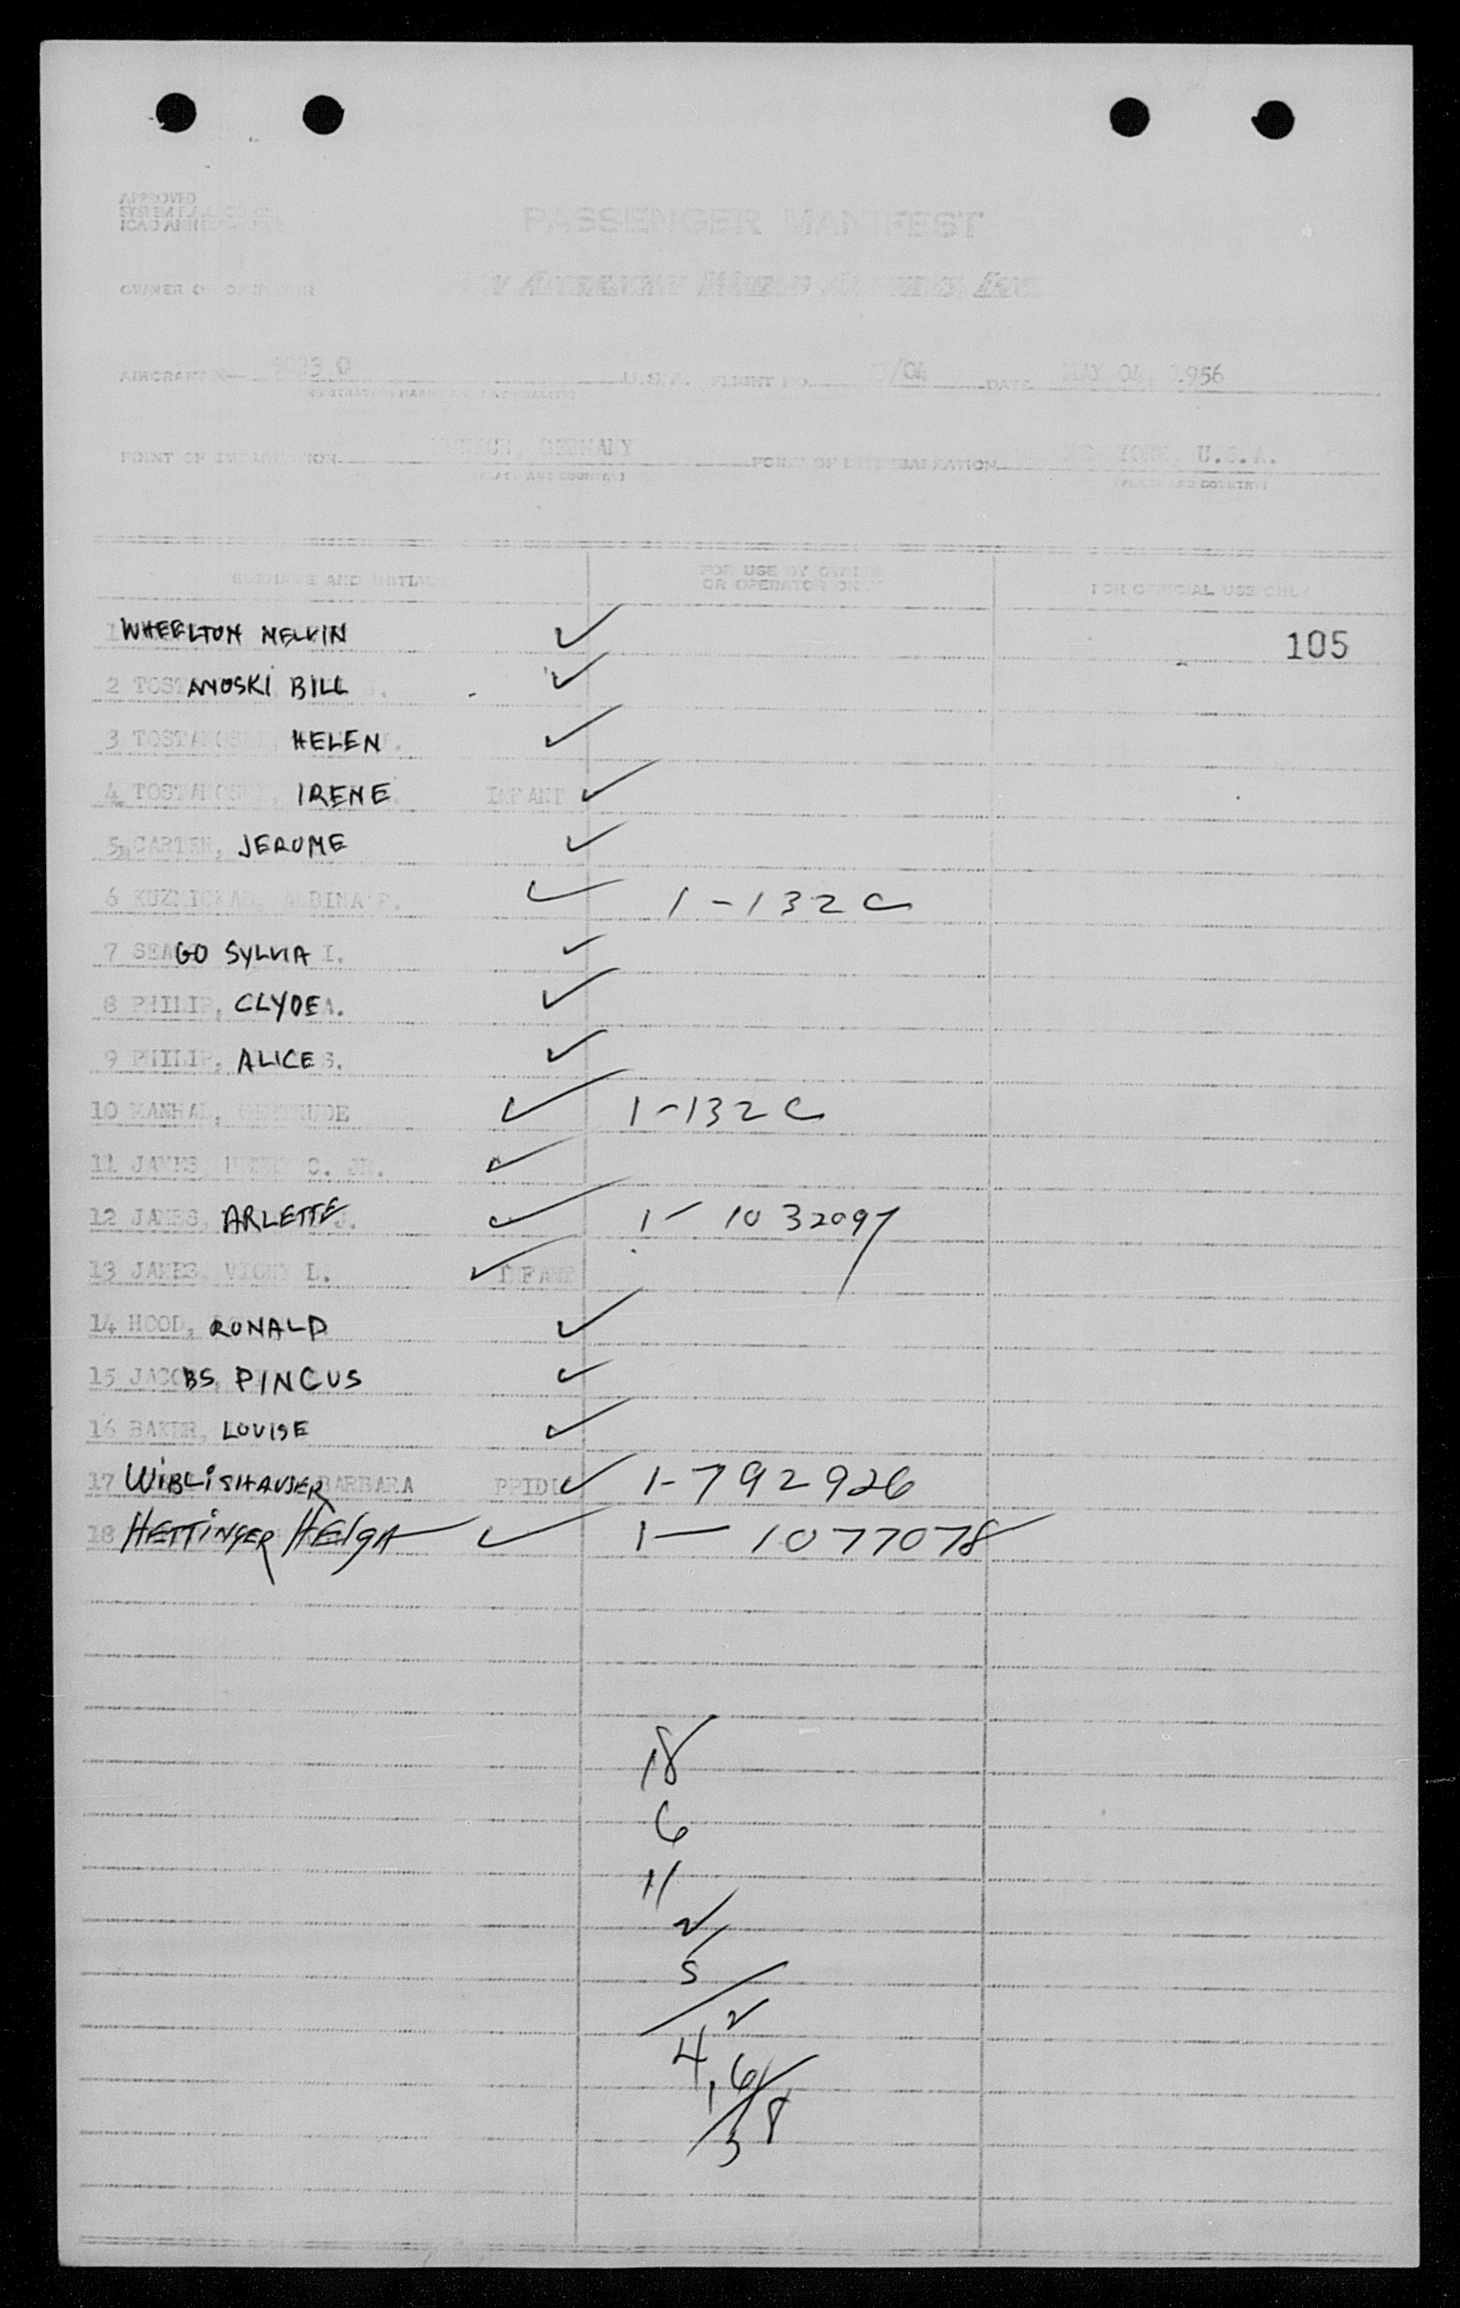 APPROVED
PASSENGER MANIFEST
OWNER OR OPERATOR
AIRCRAFT U.S.A. FLIGHT NO. /04 DATE MAY 04, 1956
POINT OF EMBARKATION GERMANY POINT OF DISEMBARKATION YORK, U.S.A.
(PLACE AND COUNTRY) (PLACE AND COUNTRY)
SURNAME AND INITIALS FOR USE BY OWNER OR OPERATOR ONLY FOR OFFICIAL USE ONLY
1 WHEELTON MELVIN ✓ 105
2 TOSTANOSKI BILL ✓
3 TOSTANOSKI, HELEN ✓
4 TOSTANOSKI, IRENE INFANT ✓
5 CARTER, JEROME ✓
6 ALDINA F. ✓ 1-132C
7 SEAGO SYLVIA I. ✓
8 PHILIP, CLYDE A. ✓
9 PHILIP, ALICE S. ✓
10 GERTRUDE ✓ 1-132C
11 JAMES, C. JR. ✓
12 JAMES, ARLETTE J. ✓ 1- 1032097
13 JAMES, VICKY L. ✓ INFANT
14 HOOD, RONALD ✓
15 JACOBS, PINCUS ✓
16 BAKER, LOUISE ✓
17 WIBLISHAUSER BARBARA ✓ 1-792926
18 HETTINGER HELGA ✓ 1- 1077078
18
6
11
2
5
42